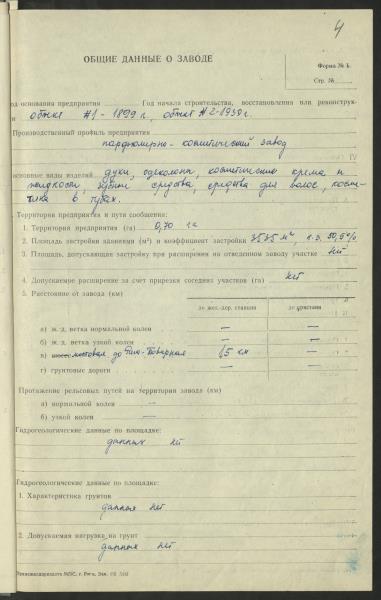 4
ОБЩИЕ ДАННЫЕ О ЗАВОДЕ
Форма № Б.
Стр. №
од основания предприятия Год начала строительства, восстановления или реконструк-
и объект #1 - 1899 г, объект #2-1930 г.
Производственный профиль предприятия
парфюмерно-косметический завод
основные виды изделий духи, одеколоны, косметические крема и
жидкости, зубные средства, средства для волос, косме-
тика в тубах.
Территория предприятия и пути сообщения:
1. Территория предприятия (га) 0,70 га
2. Площадь застройки зданиями (м²) и коэффициент застройки 3535 м², к.з. 50,5%
3. Площадь, допускающая застройку при расширении на отведенном заводу участке нет
4. Допускаемое расширение за счет прирезки соседних участков (га) нет
5. Расстояние от завода (км)
до жел.-дор. станции до пристани
а) ж.-д. ветка нормальной колеи — —
б) ж.-д. ветка узкой колеи — —
в) до Рига-Товарная 1,5 км —
г) грунтовые дороги — —
Протяжение рельсовых путей на территории завода (км)
а) нормальной колеи —
б) узкой колеи —
Гидрогеологические данные по площадке:
данных нет
Гидрогеологические данные по площадке:
1. Характеристика грунтов
данных нет
2. Допускаемая нагрузка на грунт
данных нет